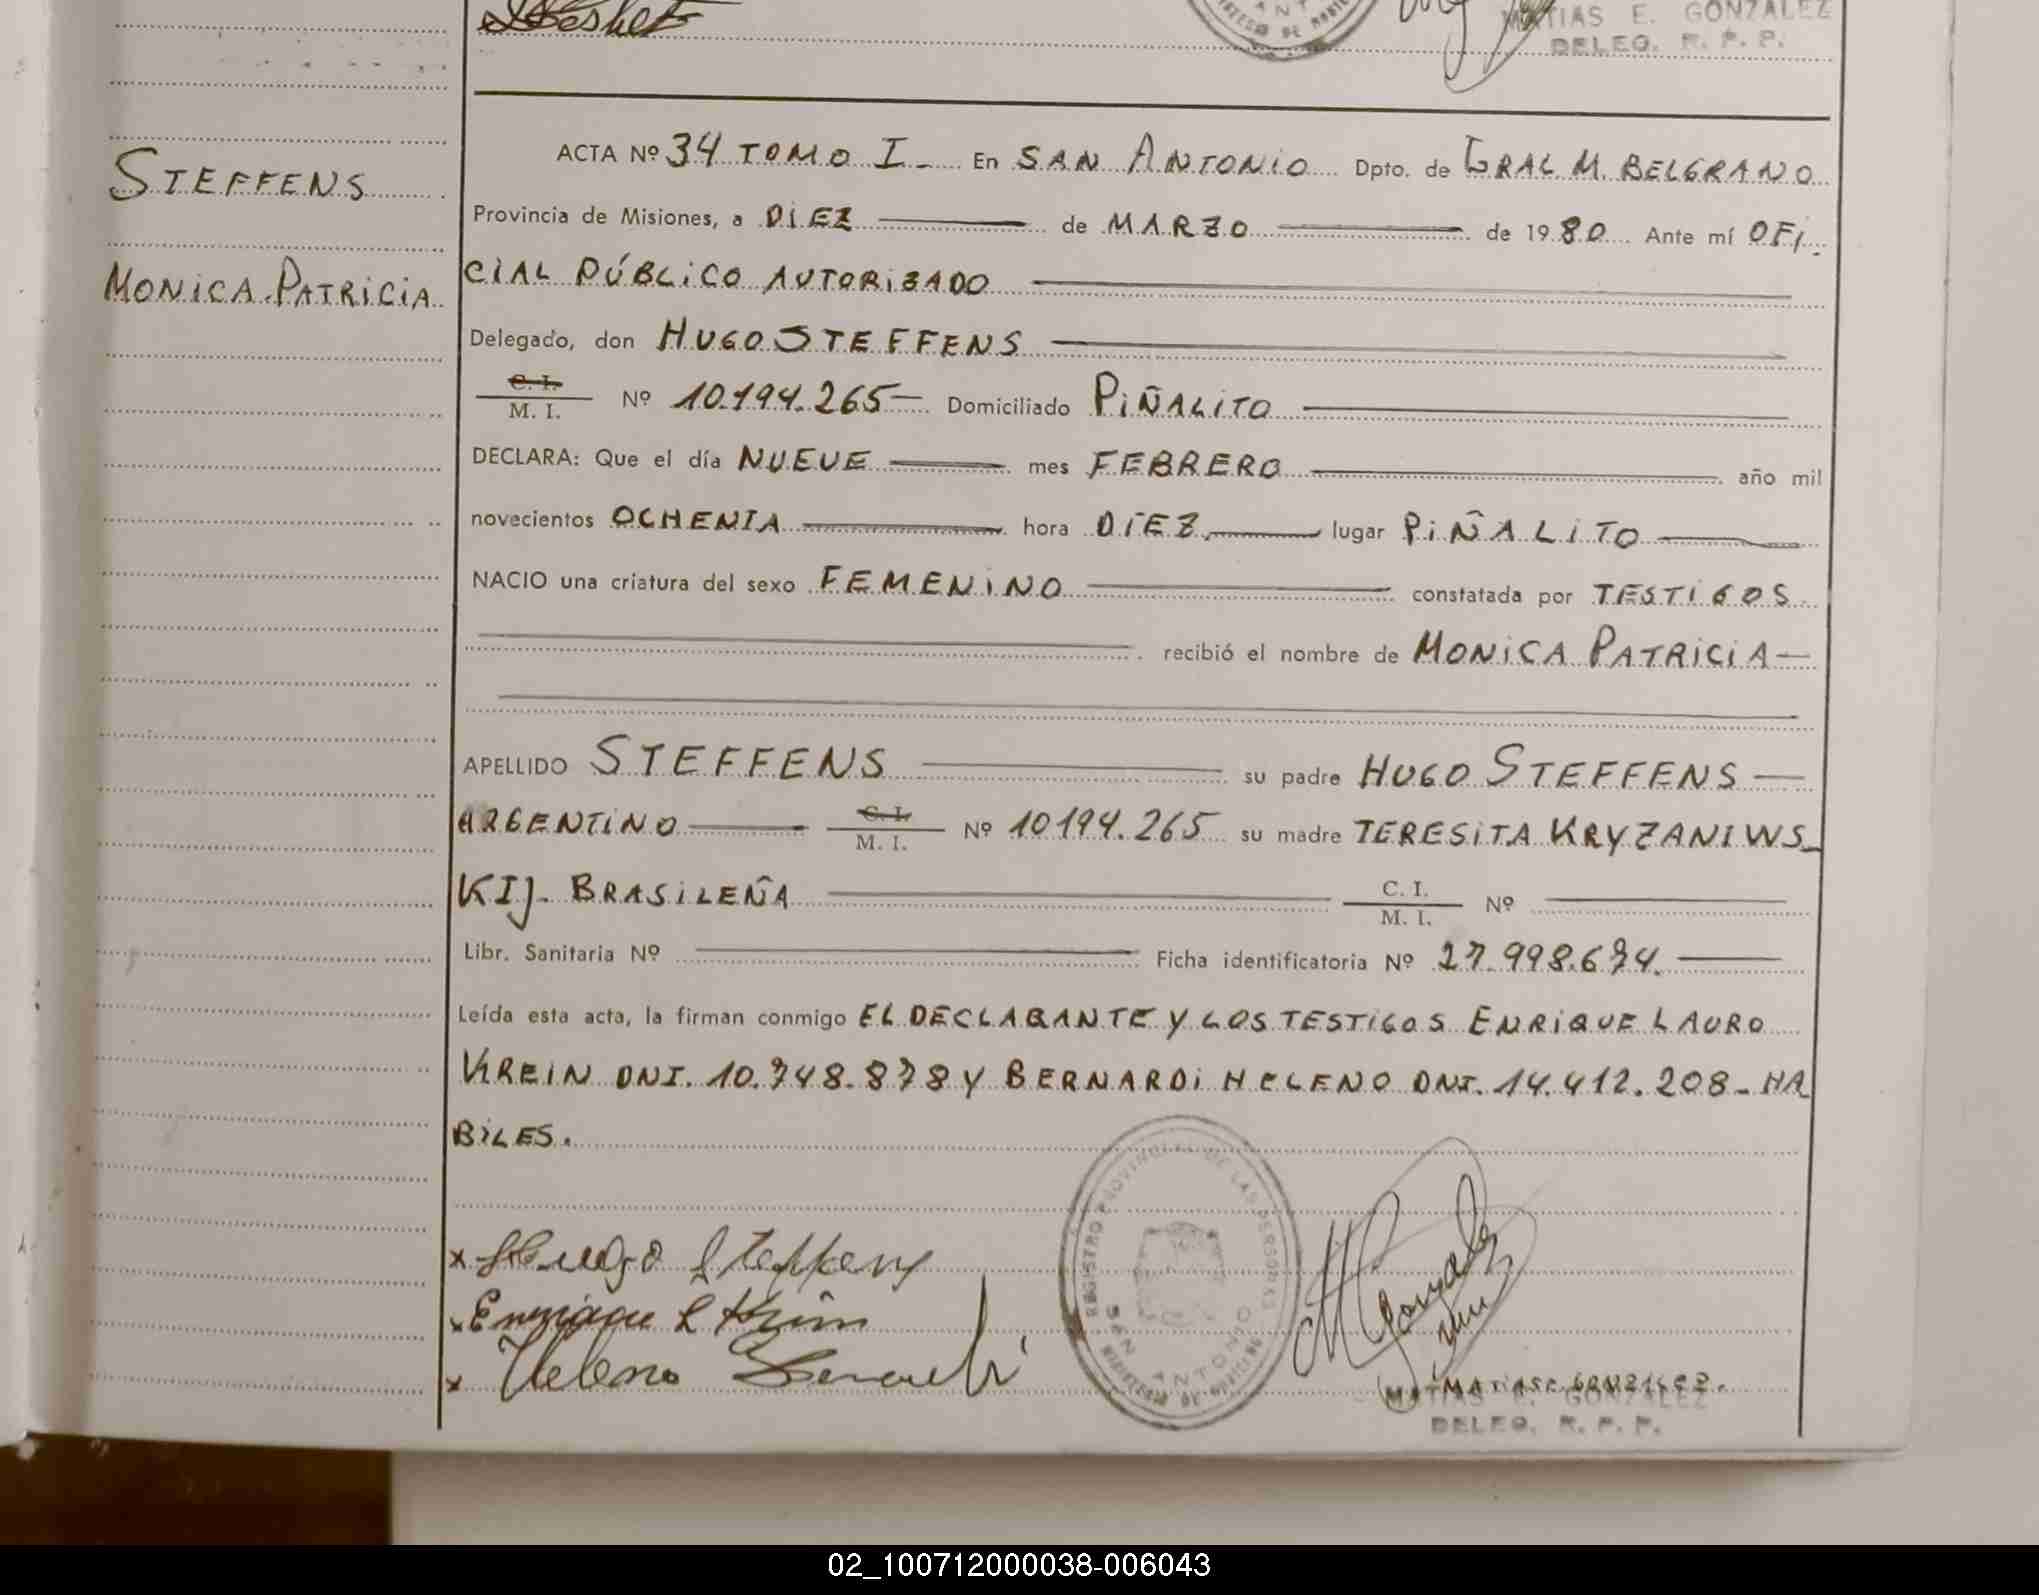 MATIAS E. GONZALEZ
DELEG. R. P. P.
STEFFENS
MONICA PATRICIA
ACTA Nº 34 TOMO I - En SAN ANTONIO Dpto. de GRAL M. BELGRANO
Provincia de Misiones, a DIEZ de MARZO de 1980 Ante mí OFI
CIAL PÚBLICO AUTORIZADO
Delegado, don HUGO STEFFENS
C. I. / M. I. Nº 10.194.265 Domiciliado PIÑALITO
DECLARA: Que el día NUEVE mes FEBRERO año mil
novecientos OCHENTA hora DIEZ lugar PIÑALITO
NACIO una criatura del sexo FEMENINO constatada por TESTIGOS
recibió el nombre de MONICA PATRICIA
APELLIDO STEFFENS su padre HUGO STEFFENS
ARGENTINO C. I. / M. I. Nº 10194.265 su madre TERESITA KRYZANIWS-
KIJ- BRASILEÑA C. I. / M. I. Nº
Libr. Sanitaria Nº Ficha identificatoria Nº 27.998.674.
Leída esta acta, la firman conmigo EL DECLARANTE Y LOS TESTIGOS ENRIQUE LAURO
KREIN DNI. 10.748.878 Y BERNARDI HELENO DNI. 14.412.208- HA
BILES.
REGISTRO PROVINCIAL DE LAS PERSONAS
SAN ANTONIO
x Hugo Steffens
x Enrique L Krein
x Heleno Bernardi
M Gonzalez
MATIAS E. GONZALEZ.
MATIAS E. GONZALEZ
DELEG. R. P. P.
02_100712000038-006043